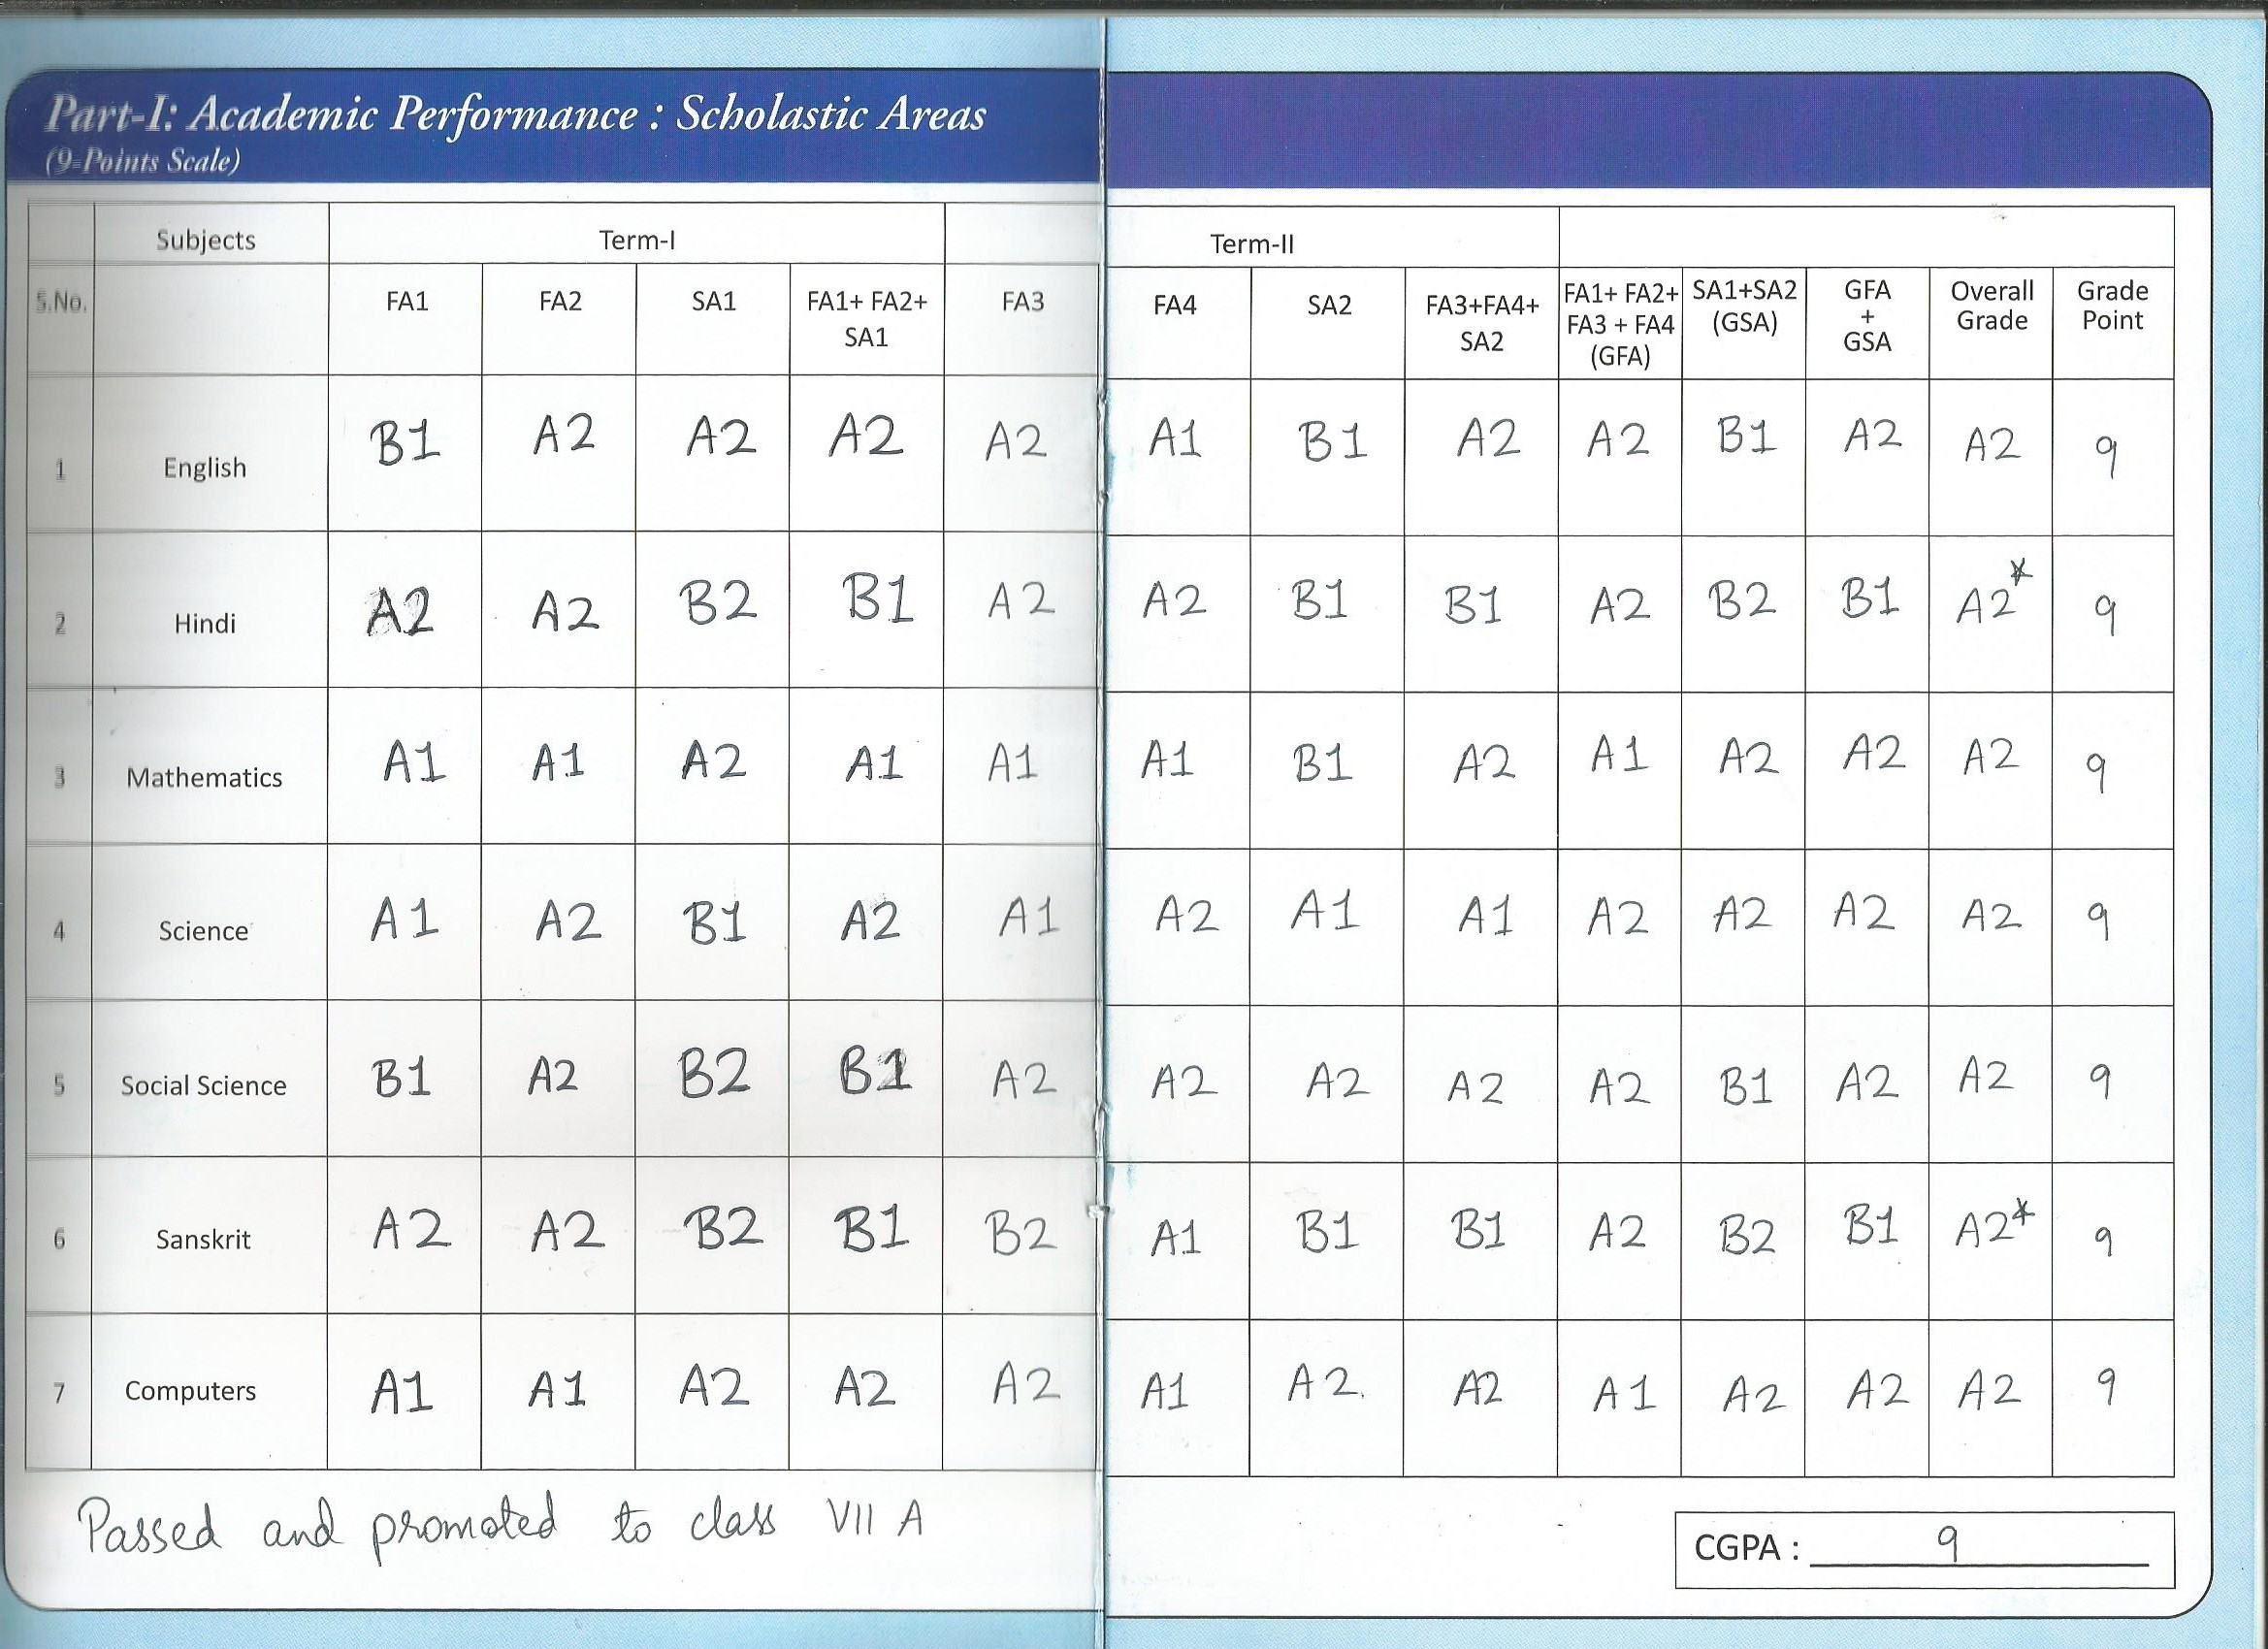 Part-I: Academic Performance : Scholastic Areas
(9-Points Scale)
Subjects Term-I Term-II
S.No. FA1 FA2 SA1 FA1+ FA2+ SA1 FA3 FA4 SA2 FA3+FA4+ SA2 FA1+ FA2+ FA3 + FA4 (GFA) SA1+SA2 (GSA) GFA + GSA Overall Grade Grade Point
1 English B1 A2 A2 A2 A2 A1 B1 A2 A2 B1 A2 A2 9
2 Hindi A2 A2 B2 B1 A2 A2 B1 B1 A2 B2 B1 A2* 9
3 Mathematics A1 A1 A2 A1 A1 A1 B1 A2 A1 A2 A2 A2 9
4 Science A1 A2 B1 A2 A1 A2 A1 A1 A2 A2 A2 A2 9
5 Social Science B1 A2 B2 B1 A2 A2 A2 A2 A2 B1 A2 A2 9
6 Sanskrit A2 A2 B2 B1 B2 A1 B1 B1 A2 B2 B1 A2* 9
7 Computers A1 A1 A2 A2 A2 A1 A2 A2 A1 A2 A2 A2 9
Passed and promoted to class VII A
CGPA : 9